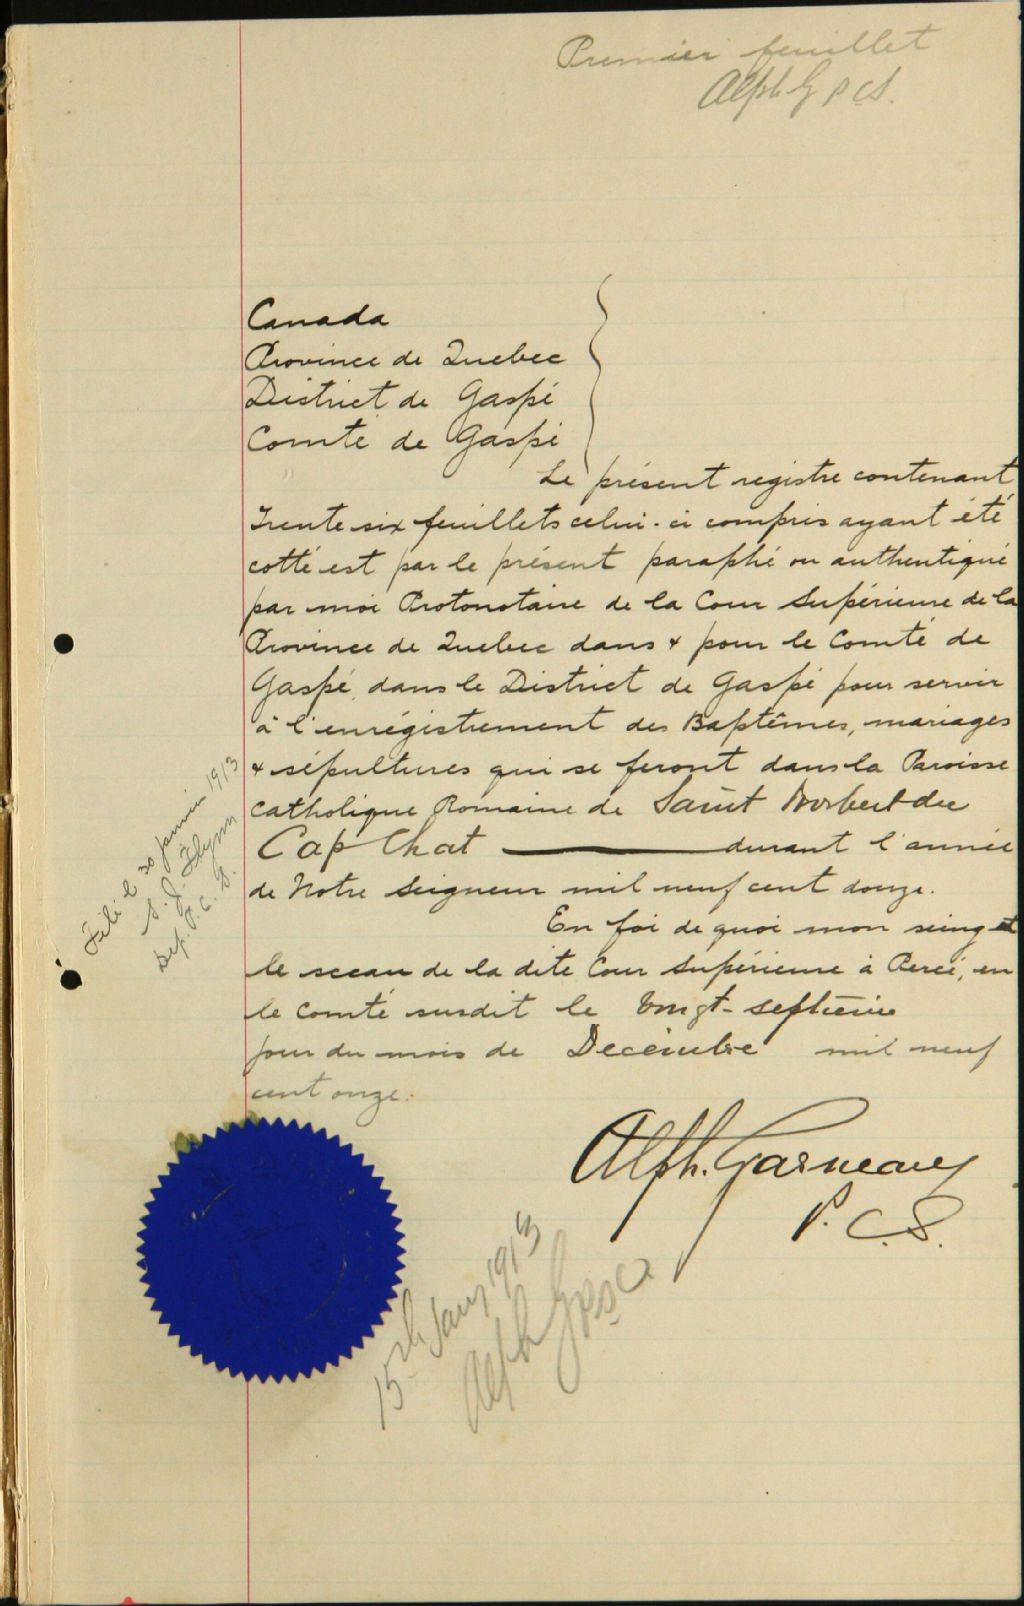 Premier feuillet
Alph G P C S.
Canada
Province de Quebec
District de Gaspé
Comté de Gaspé
Le présent registre contenant
Trente six feuillets celui-ci compris ayant été
cotté est par le présent paraphé ou authentiqué
par moi Protonotaire de la Cour Supérieure de la
Province de Quebec dans & pour le Comté de
Gaspé, dans le District de Gaspé pour servir
à l'enrégistrement des Baptêmes, mariages
& sépultures qui se feront dans la Paroisse
Catholique Romaine de Saint Norbert du
Cap Chat durant l'année
de Notre Seigneur mil neuf cent douze.
En foi de quoi mon seing et
le sceau de la dite Cour Supérieure à Percé, en
le Comté susdit le Vingt-septième
jour du mois de Décembre mil neuf
cent onze.
Alph. Garneau
P. C. S.
Filé le 30 janvier 1913
S. J. Flynn
Dep. P. C. S.
15th Jany 1913
Alph G P S C